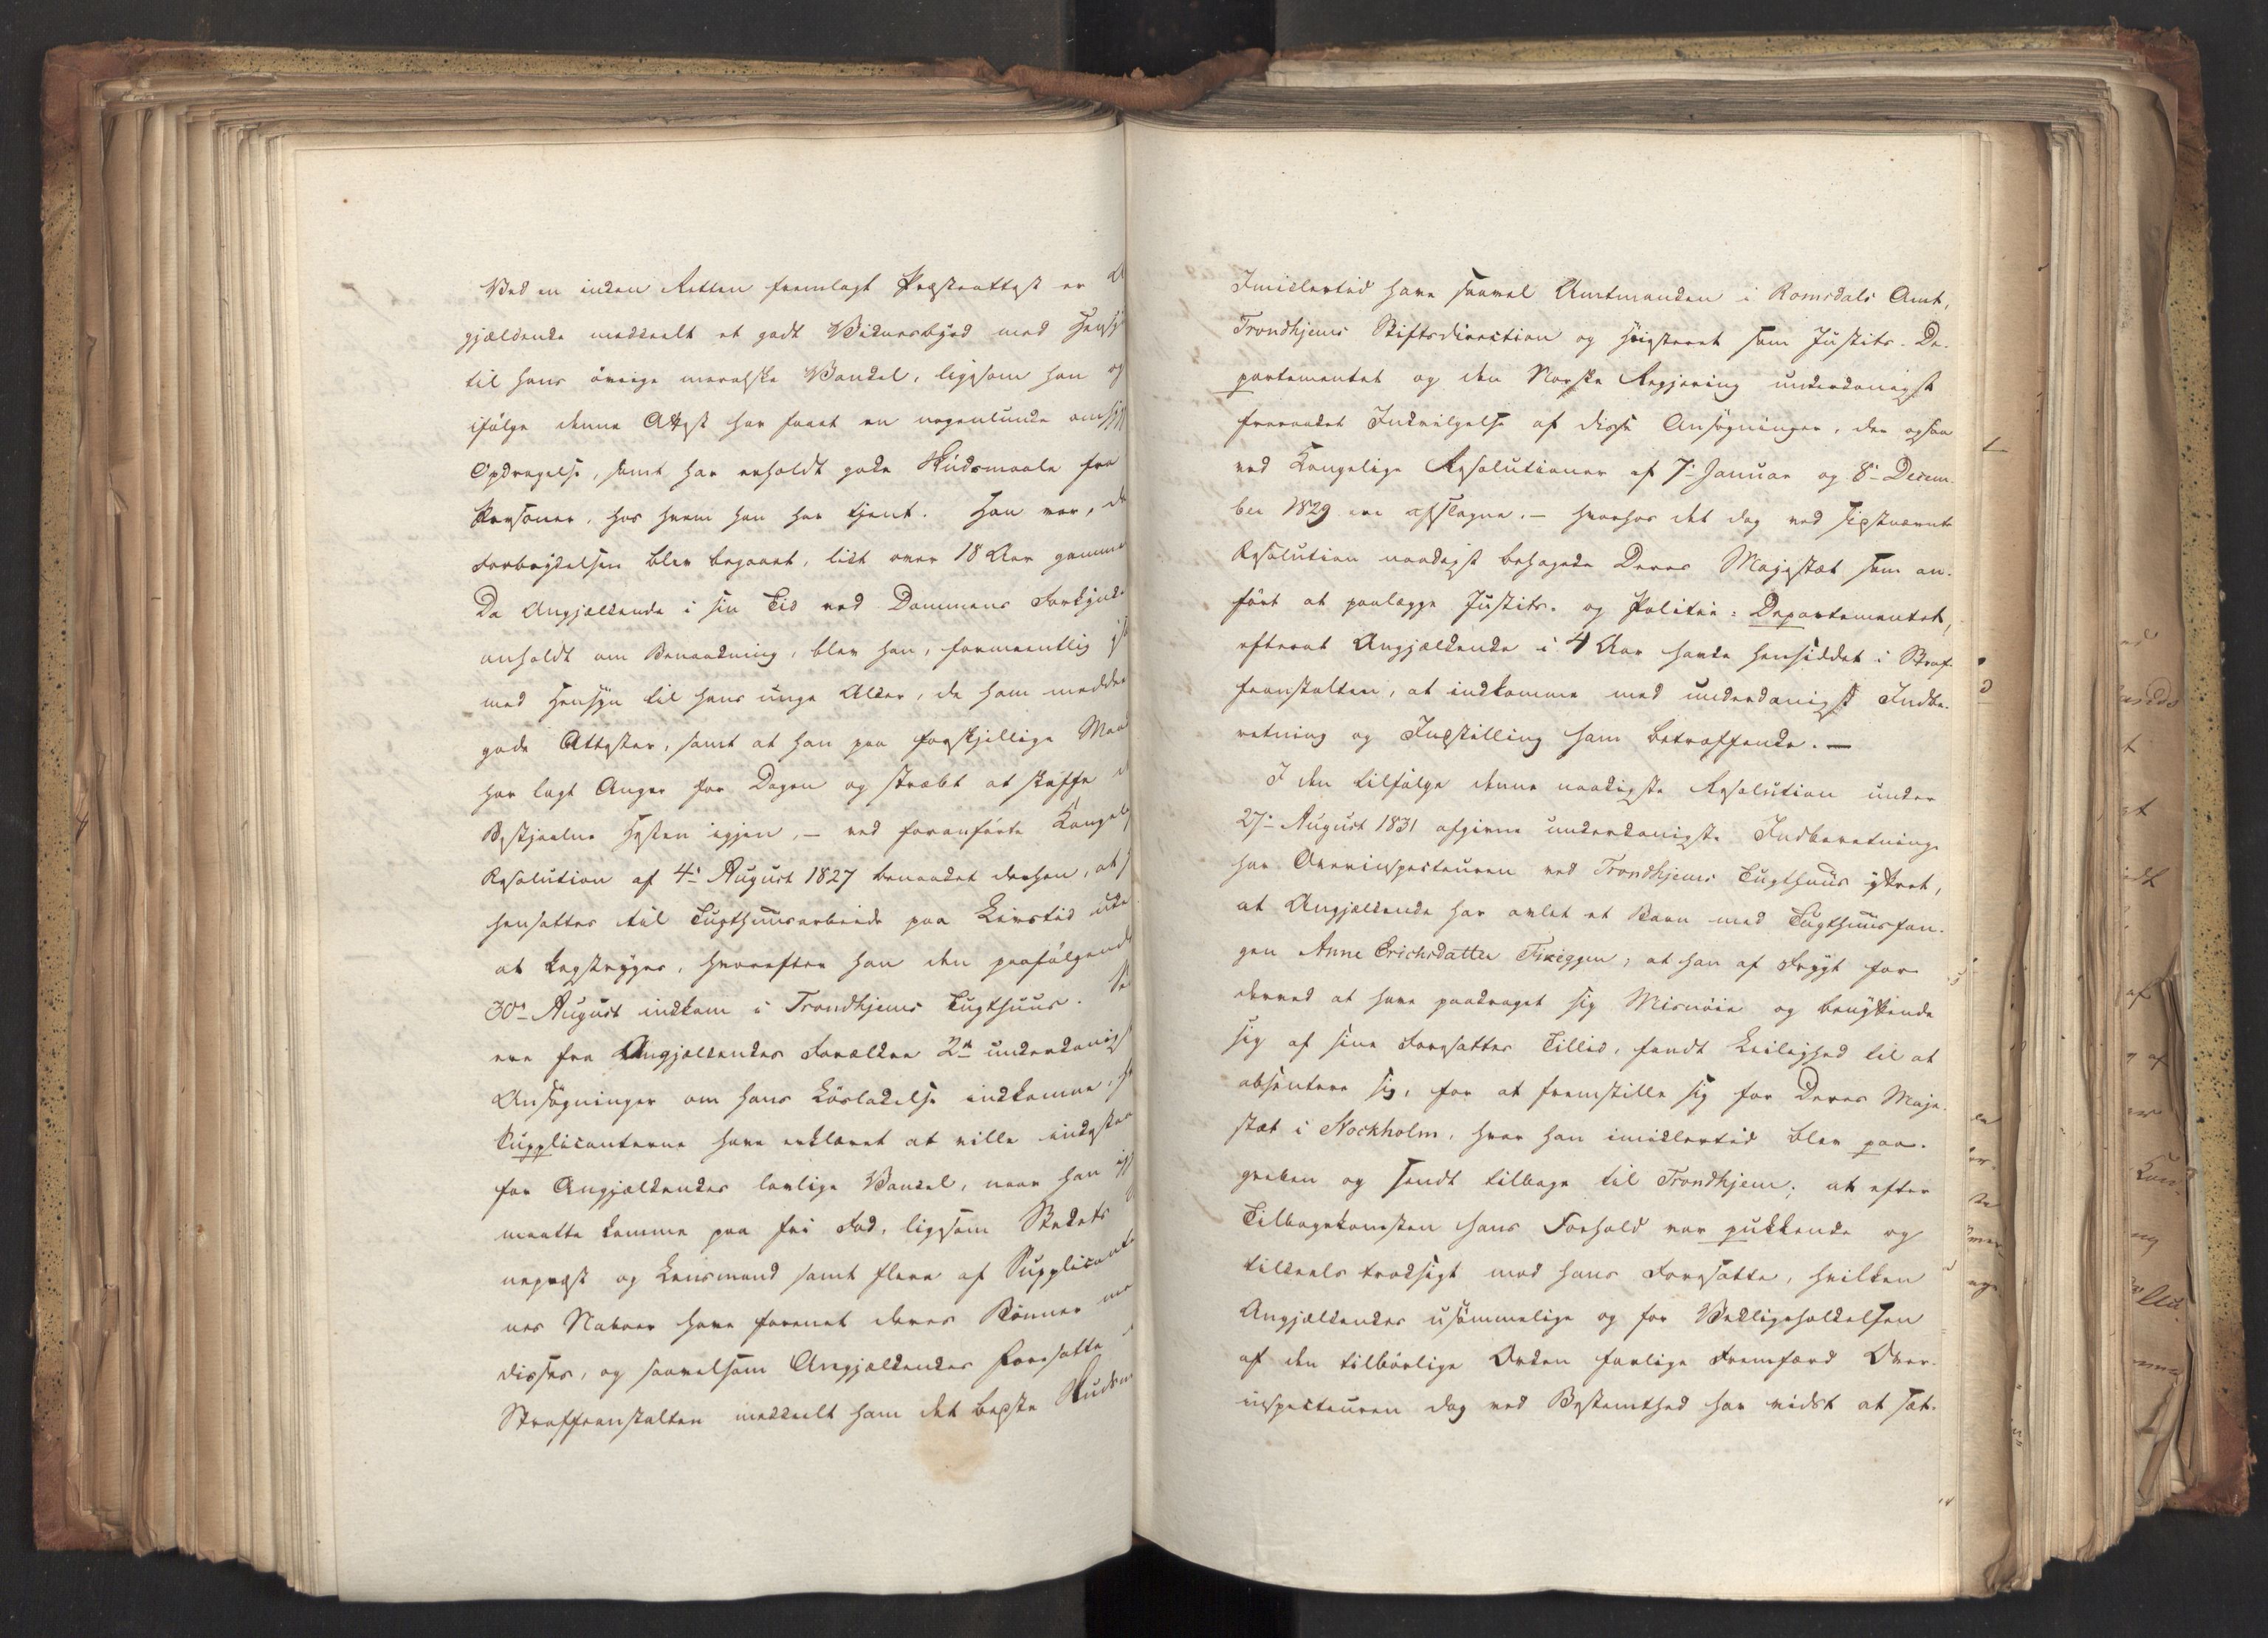 Ved en inden Retten fremlagt Præsteattest er A
gjældende meddeelt et godt Vidnesbyrd med Hensy
til hans övrige moralske Vandel, ligesom han og
ifölge denne Attest har faaet en nogenlunde omhyg
Opdragelse, samt har erholdt gode Skudsmaale fra
Personer, hos hvem han har tjent. Han var, da
Forbrydelsen blev begaaet, lidt over 18 Aar gamme
Da Angjældende i sin Tid ved Dommens Forkynde
anholdt om Benaadning, blev han, formeentlig
med Hensyn til hans unge Alder, de ham meddee
gode Attester, samt at han paa forskjellige Maa
har lagt Anger for Dagen og stræbt at skaffe d
Bestjaalne Hesten igjen, – ved foranförte Kongel
Resolution af 4de August 1827 benaadet derhen, at
hensættes til Tugthuusarbeide paa Livstid uden
at kagstryges, hvorefter han den paafölgende
30te August indkom i Trondhjems Tugthuus.
ere fra Angjældendes Forældre 2de underdanigst
Ansögninger om hans Löslatelse indkomne, h
Supplicanterne have erklæret at ville indestaa
for Angjældendes lovlige Vandel, naar han
maatte komme paa fri Fod, ligesom Stedets
nepræst og Lensmand samt flere af Supplicante
nes Naboer have forenet deres Bönner me
disses, og saavelsom Angjældendes Foresatte
Straffeanstalten meddeelt ham det bedste Skudsm
Imidlertid have saavel Amtmanden i Romsdals Amt,
Trondhjems Stiftsdirection og Höiesteret som Justits-De-
partementet og den Norske Regjering underdanigst
fraraadet Indvilgelse af disse Ansögninger, der ogsaa
ved Kongelige Resolutioner af 7de Januar og 8de Decem-
ber 1829 ere afslagne. – hvorhos det dog ved sidstnævnte
Resolution naadigst behagede Deres Majestæt som an-
fört at paalægge Justits- og Politie-Departementet,
efterat Angjældende i 4 Aar havde hensiddet i Straf-
feanstalten, at indkomme med underdanigst Indbe-
retning og Indstilling ham betræffende. –
I den tilfölge denne naadigste Resolution under
27de August 1831 afgivne underdanigste Indberetning
har Overinspecteuren ved Trondhjems Tugthuus yttret,
at Angjældende har avlet et Barn med Tugthuusfan-
gen Anne Erichsdatter Fixeggen; at han af Frygt for
derved at have paadraget sig Misnöie og benyttende
sig af sine Foresattes Tillid, fandt Leilighed til at
absentere sig, for at fremstille sig for Deres Maje-
stæt i Stockholm, hvor han imidlertid blev paa-
greben og sendt tilbage til Trondhjem; at efter
Tilbagekomsten hans Forhold var pukkende og
tildeels trodsigt mod hans Foresatte, hvilken
Angjældendes usömmelige og for Vedligeholdelsen
af den tilbörlige Orden farlige Fremfærd Over-
inspecteuren dog ved Bestemthed har vidst at sæt-